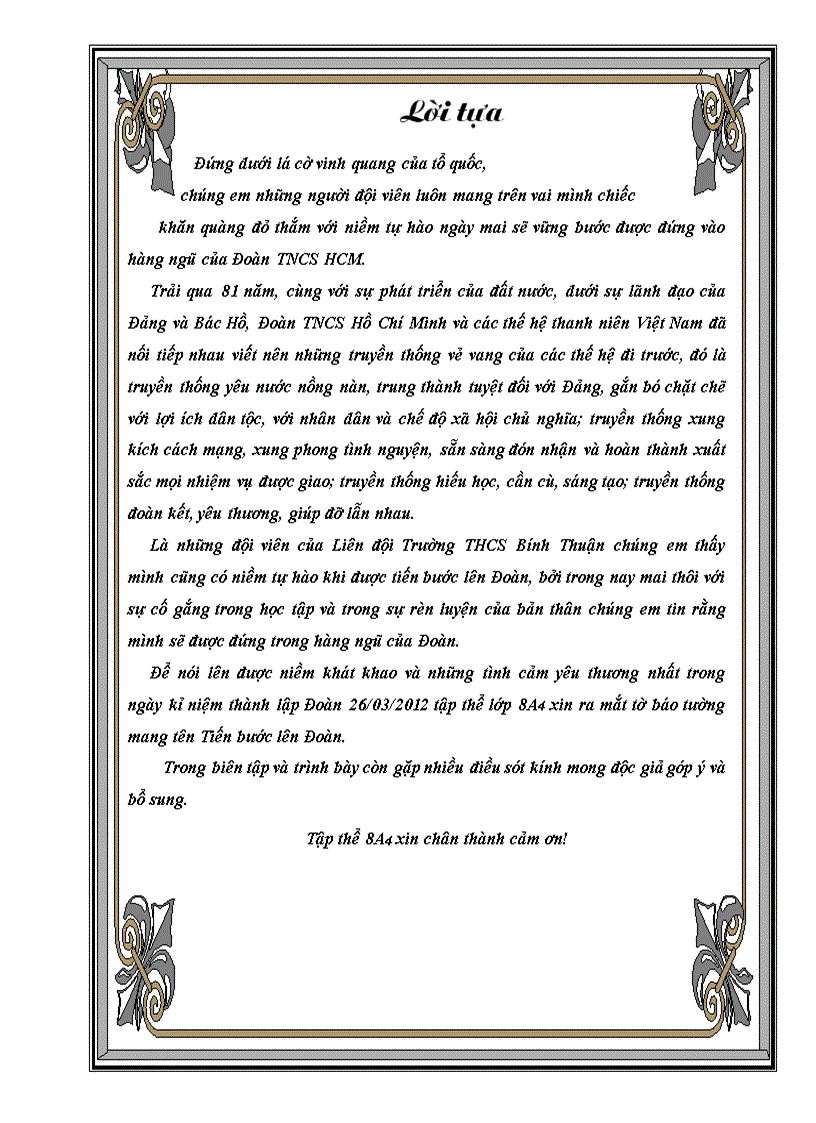 Lời tựa
Đứng dưới lá cờ vinh quang của tổ quốc,
chúng em những người đội viên luôn mang trên vai mình chiếc
khăn quàng đỏ thắm với niềm tự hào ngày mai sẽ vững bước được đứng vào
hàng ngũ của Đoàn TNCS HCM.
Trải qua 81 năm, cùng với sự phát triễn của đất nước, dưới sự lãnh đạo của
Đảng và Bác Hồ, Đoàn TNCS Hồ Chí Minh và các thế hệ thanh niên Việt Nam đã
nối tiếp nhau viết nên những truyền thống vẻ vang của các thế hệ đi trước, đó là
truyền thống yêu nước nồng nàn, trung thành tuyệt đối với Đảng, gắn bó chặt chẽ
với lợi ích dân tộc, với nhân dân và chế độ xã hội chủ nghĩa; truyền thống xung
kích cách mạng, xung phong tình nguyện, sẵn sàng đón nhận và hoàn thành xuất
sắc mọi nhiệm vụ được giao; truyền thống hiếu học, cần cù, sáng tạo; truyền thống
đoàn kết, yêu thương, giúp đỡ lẫn nhau.
Là những đội viên của Liên đội Trường THCS Bính Thuận chúng em thấy
mình cũng có niềm tự hào khi được tiến bước lên Đoàn, bởi trong nay mai thôi với
sự cố gắng trong học tập và trong sự rèn luyện của bản thân chúng em tin rằng
mình sẽ được đứng trong hàng ngũ của Đoàn.
Để nói lên được niềm khát khao và những tình cảm yêu thương nhất trong
ngày kỉ niệm thành lập Đoàn 26/03/2012 tập thể lớp 8A4 xin ra mắt tờ báo tường
mang tên Tiến bước lên Đoàn.
Trong biên tập và trình bày còn gặp nhiều điều sót kính mong độc giả góp ý và
bổ sung.
Tập thể 8A4 xin chân thành cảm ơn!